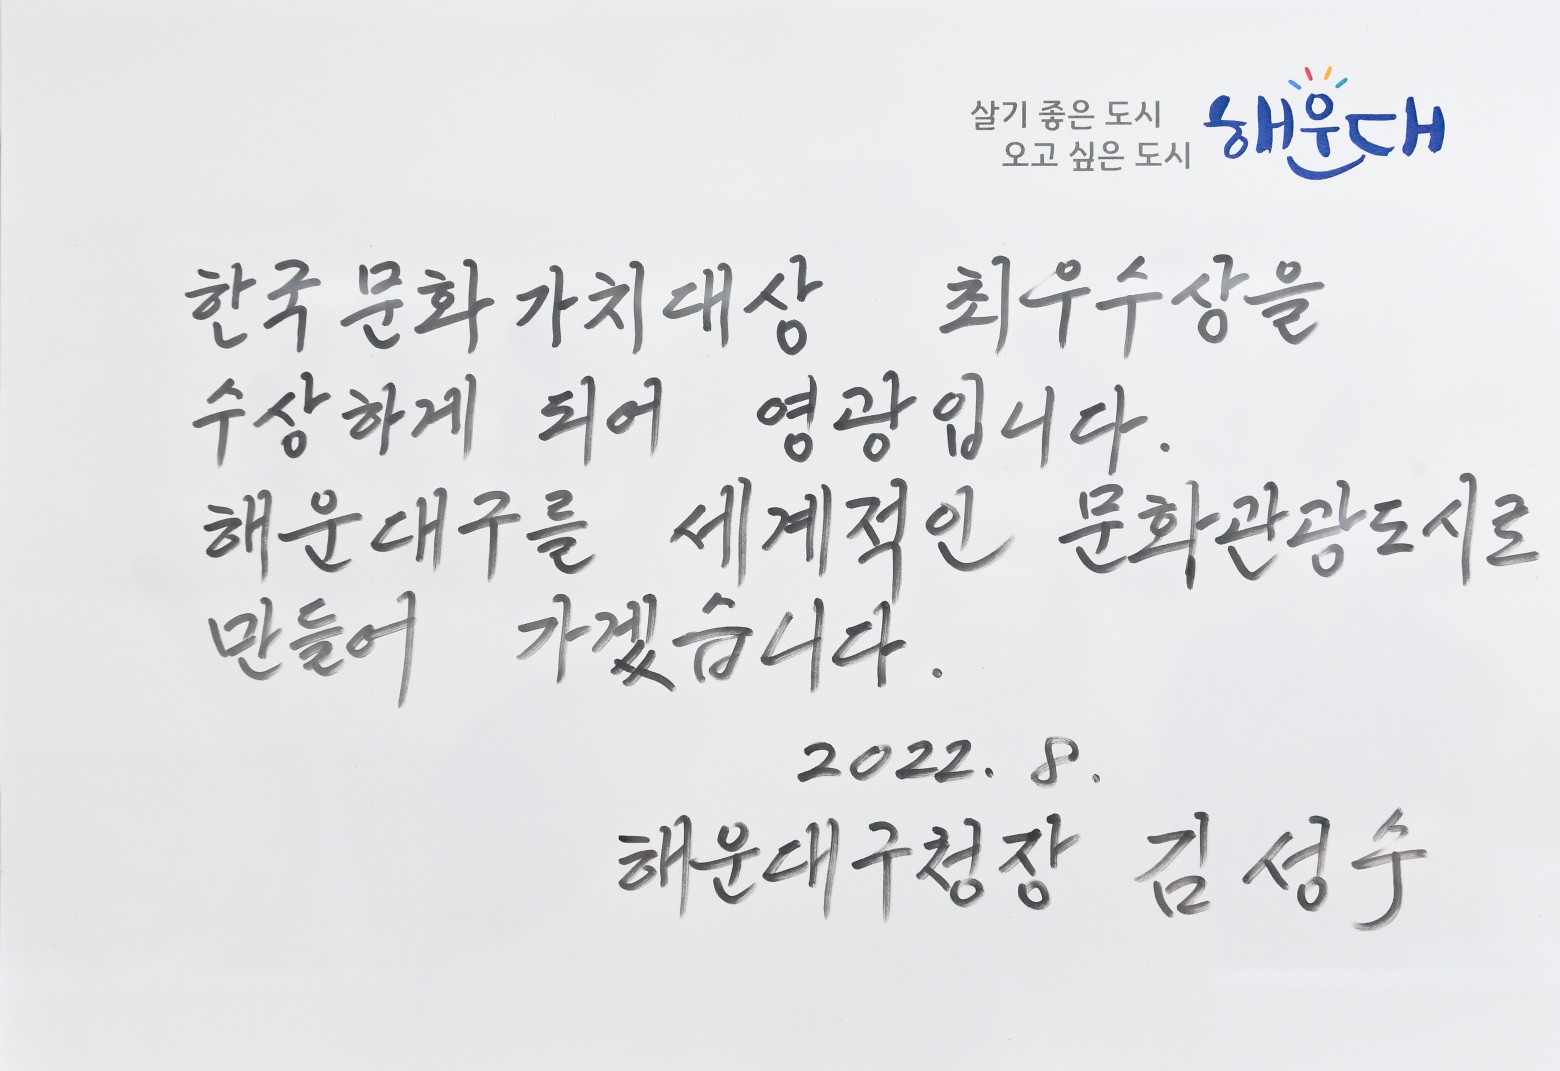 살기 좋은 도시
오고 싶은 도시
해운대
한국문화가치대상 최우수상을
수상하게 되어 영광입니다.
해운대구를 세계적인 문화관광도시로
만들어 가겠습니다.
2022. 8.
해운대구청장 김성수